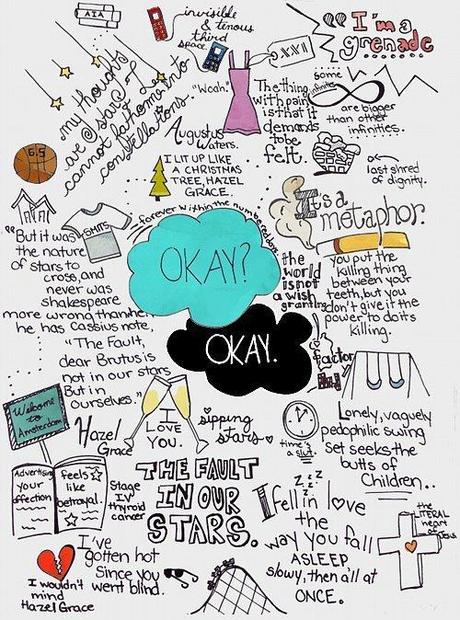 AIA
invisible
& tenous
third
space.
I'm a
grenade
XXII
"Woah."
my thoughts
are stars I
cannot fathom into
constellations.
Some
infinities
are bigger
than other
infinities.
The thing
with pain
is that it
demands
to be
felt.
Augustus
Waters.
6.5
I LIT UP LIKE
A CHRISTMAS
TREE, HAZEL
GRACE.
last shred
of dignity.
It's a
metaphor.
forever within the numbered days
SMITS
"But it was
the nature
of stars to
cross, and
never was
Shakespeare
more wrong than when
he has Cassius note,
"The Fault,
dear Brutus is
not in our stars
But in
ourselves."
OKAY?
OKAY.
the
world
is not
a wish
granting
factory
you put the
killing thing
between your
teeth, but you
don't give it the
power to do its
killing.
Welcome
to
Amsterdam
Hazel
Grace
I
LOVE
YOU.
sipping
stars
time's
a slut.
Lonely, vaguely
pedophilic swing
set seeks the
butts of
Children..
Advertising
your
affection
feels
like
betrayal.
Stage
IV
thyroid
cancer
THE FAULT
IN OUR
STARS.
z z z
I fell in love
the
way you fall
ASLEEP
slowy, then all at
ONCE.
the
LITERAL
heart
of
Jesus
I wouldn't
mind
Hazel Grace
I've
gotten hot
Since you
went blind.